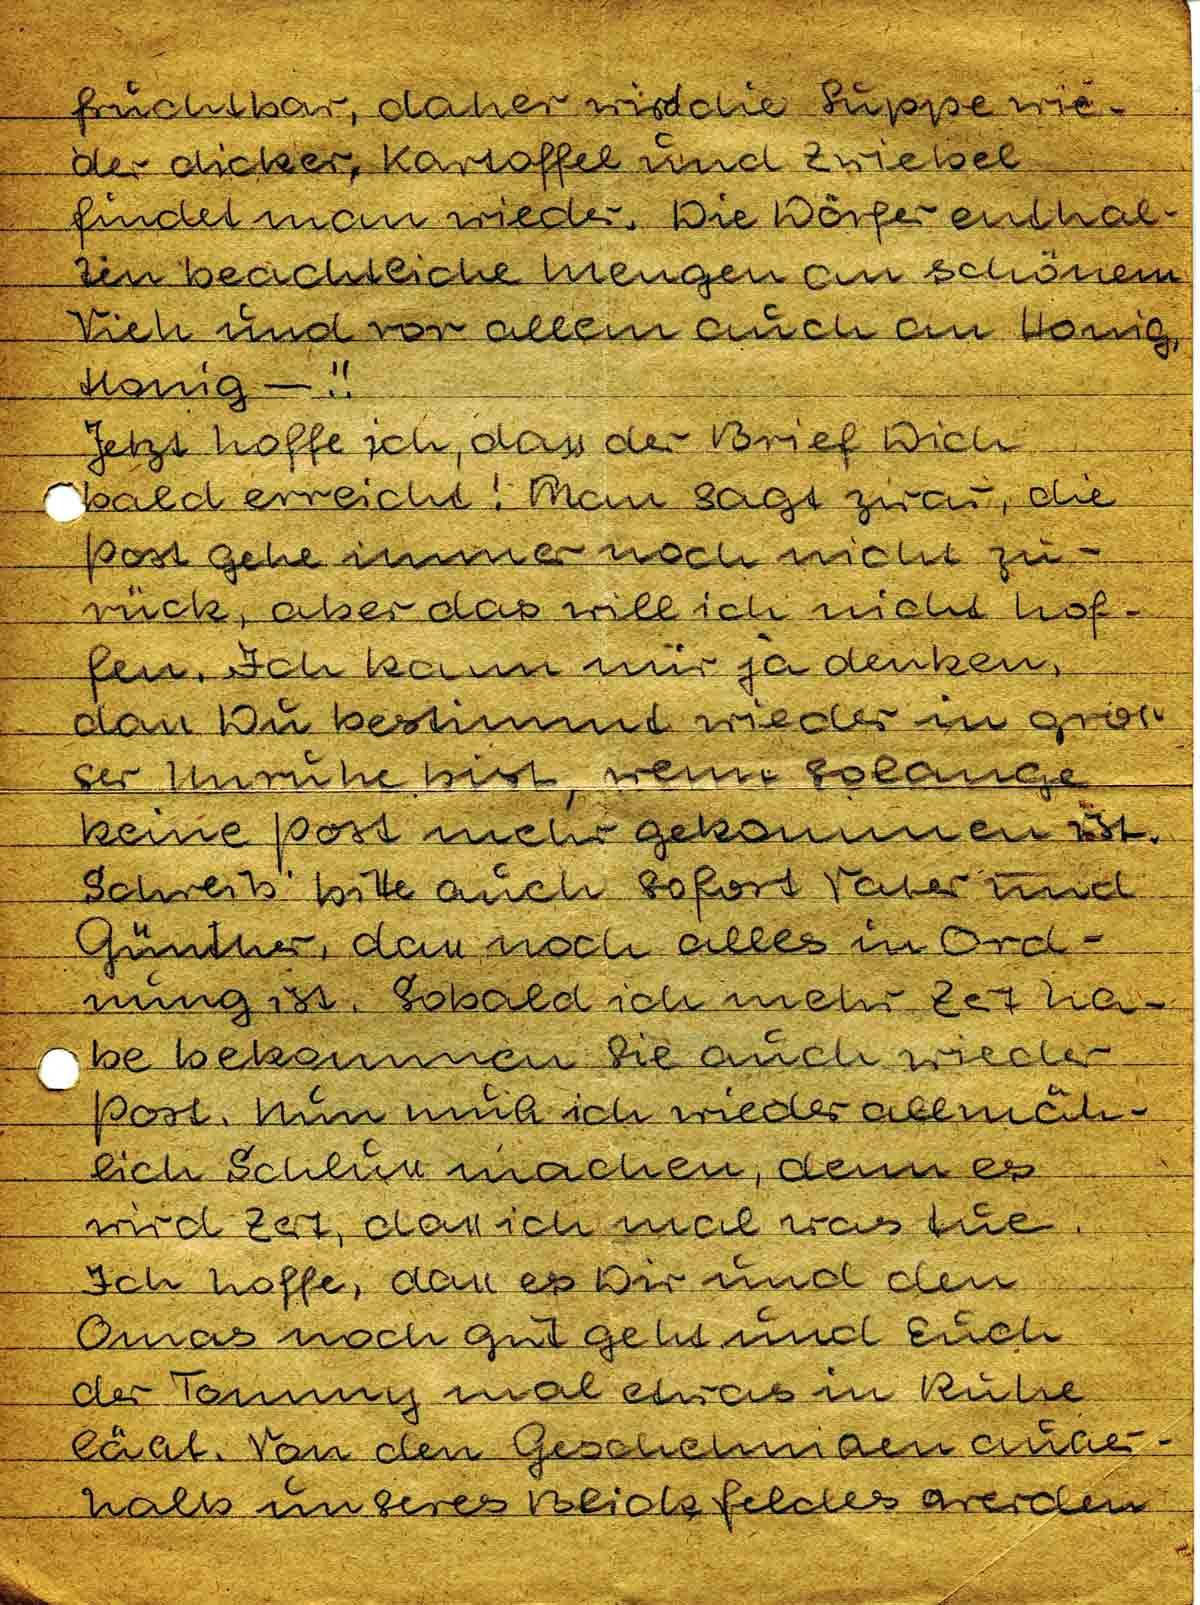 fruchtbar, daher wird die Suppe wie-
der dicker, Kartoffel und Zwiebel
findet man wieder. Die Dörfer enthal-
ten beachtliche Mengen an schönem
Vieh und vor allem auch an Honig,
Honig — !!
Jetzt hoffe ich, dass der Brief Dich
bald erreicht! Man sagt zwar, die
Post gehe immer noch nicht zu-
rück, aber das will ich nicht hof-
fen. Ich kann mir ja denken,
dass Du bestimmt wieder in gros-
ser Unruhe bist, wenn solange
keine Post mehr gekommen ist.
Schreib' bitte auch sofort Vater und
Günther, dass noch alles in Ord-
nung ist. Sobald ich mehr Zeit ha-
be bekommen Sie auch wieder
Post. Nun muß ich wieder allmäh-
lich Schluss machen, denn es
wird Zeit, dass ich mal was tue.
Ich hoffe, dass es Dir und den
Omas noch gut geht und Euch
der Tommy mal etwas in Ruhe
läßt. Von den Geschehnißen außer-
halb unseres Blickfeldes werden